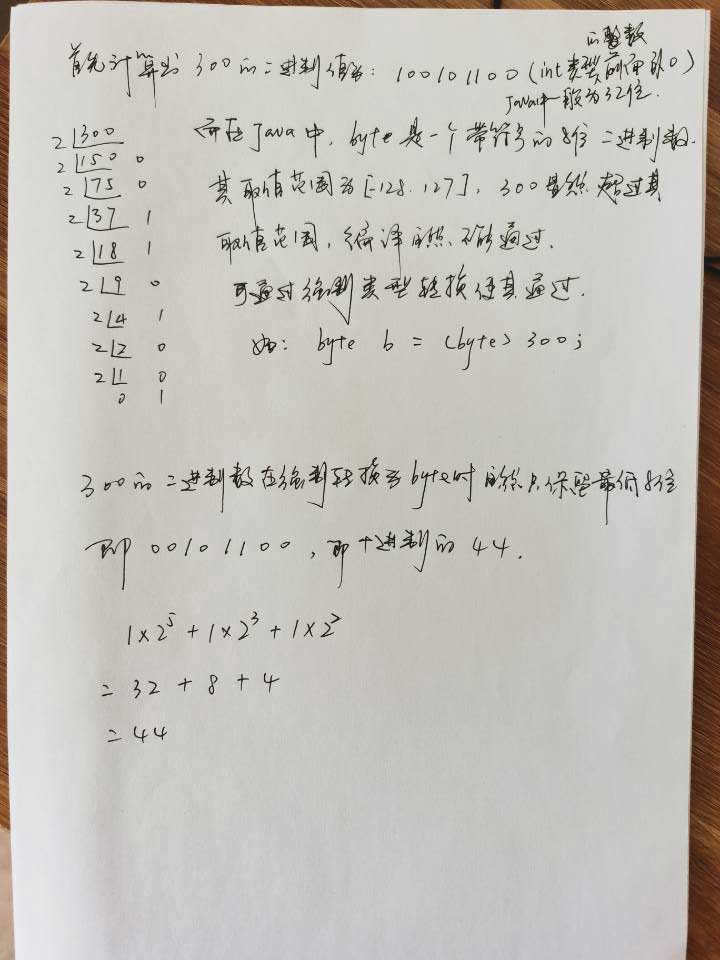 的整数
首先计算出 300 的二进制值为: 100101100 (int类型前面补0)
Java中一般为32位.
2 300
2 150 0
2 75 0
2 37 1
2 18 1
2 9 0
2 4 1
2 2 0
2 1 0
0 1
而在Java中, byte是一个带符号的8位二进制数.
其取值范围为[-128.127], 300显然超过其
取值范围, 编译自然不能通过.
可通过强制类型转换使其通过.
如: byte b = (byte) 300;
300的二进制数在强制转换为byte时自然只保留最低8位
即 00101100, 即十进制的 44.
1×2⁵ + 1×2³ + 1×2²
= 32 + 8 + 4
= 44